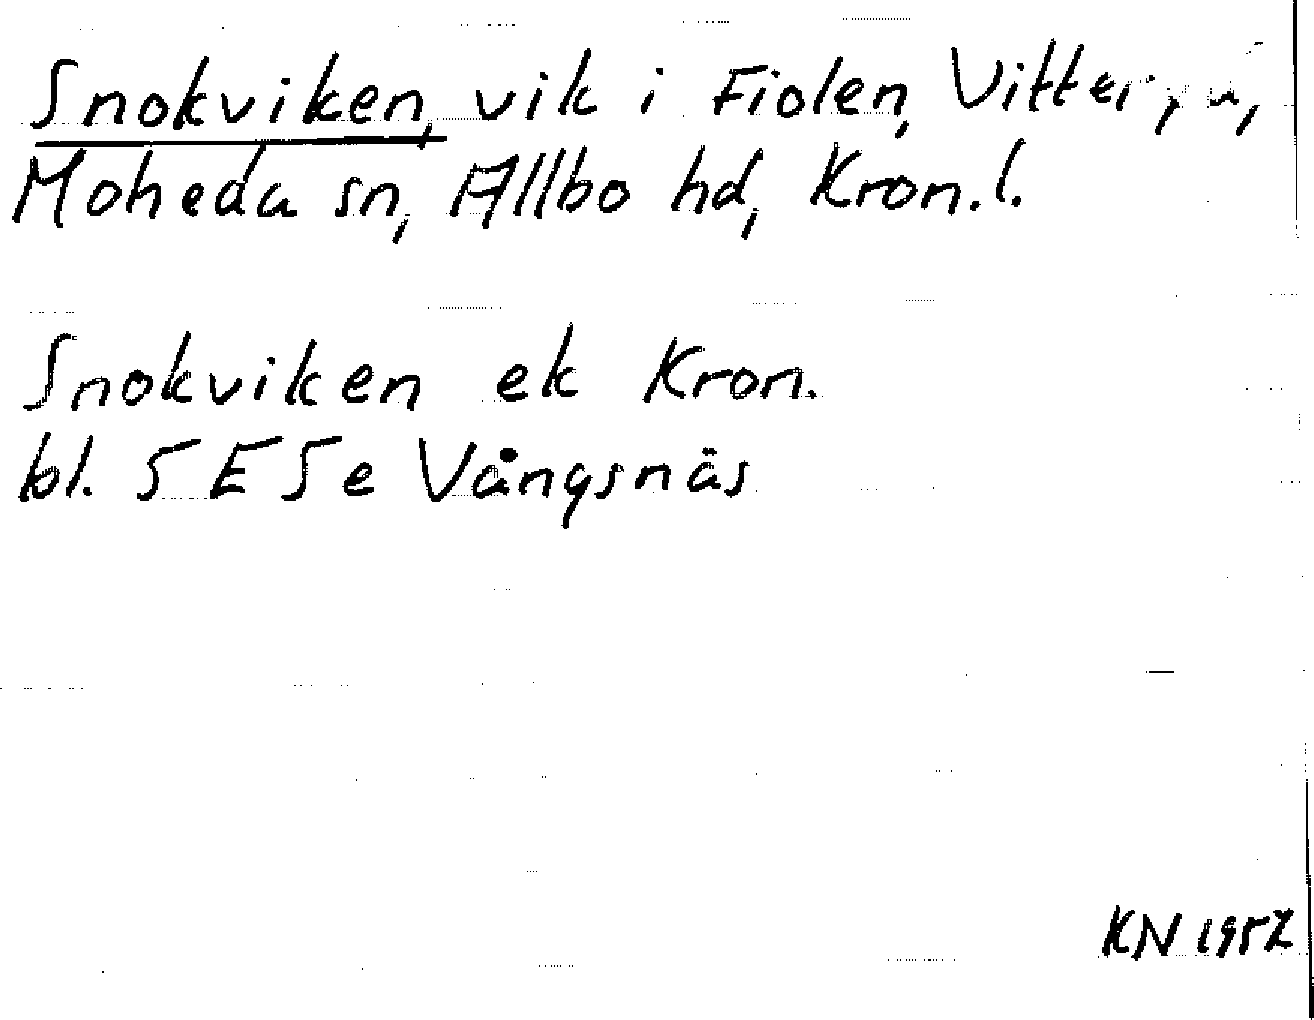 Snokviken, vik i Fiolen,
Moheda sn, Allbo hd, Kron.l.
Snokviken ek Kron.
bl. 5 E 5 e Vångsnäs
KN 1952